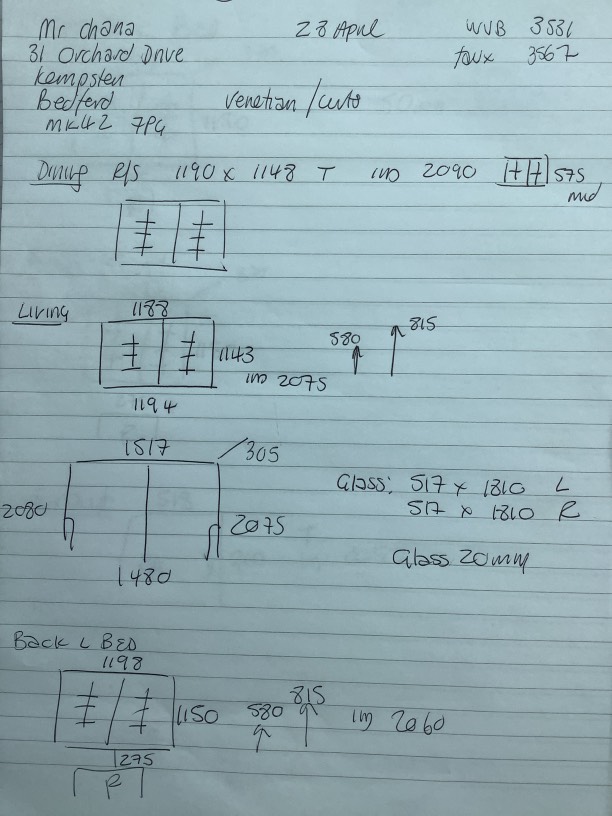 Mr chana 28 April WVB 3531
31 Orchard Drive faux 3567
Kempsten
Bedferd Venetian /
MK42 7PG
Dining R/S 1190 x 1148 T 1M 2090 575
Mid
Living 1188
580 815
1143
1M 2075
1194
1517 305
Glass: 517 x 1810 L
2080 517 x 1810 R
2075
Glass 20mm
1480
Back L BED
1198
1150 580 815 1M 2060
275
R